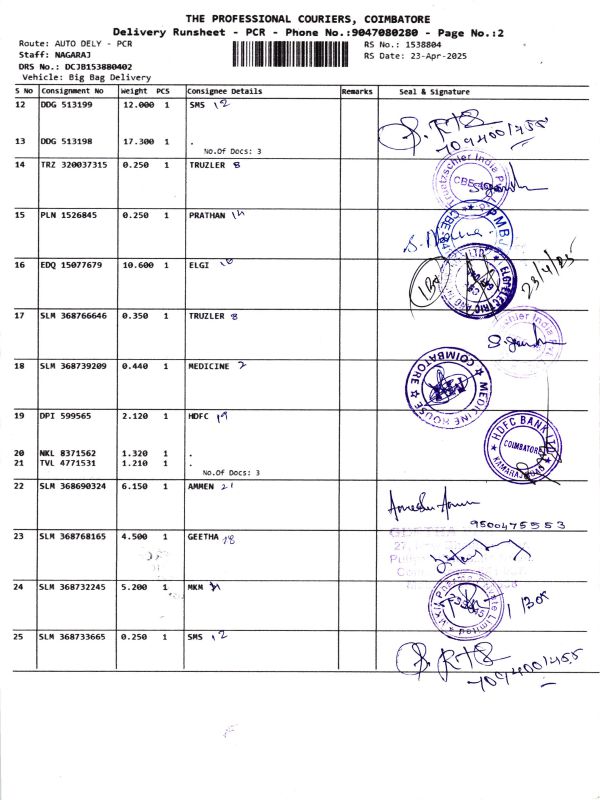 THE PROFESSIONAL COURIERS, COIMBATORE
Delivery Runsheet - PCR - Phone No.:9047080280 - Page No.:2
Route: AUTO DELY - PCR
RS No.: 1538804
Staff: NAGARAJ
RS Date: 23-Apr-2025
DRS No.: DCJB153880402
Vehicle: Big Bag Delivery
S No Consignment No Weight PCS Consignee Details Remarks Seal & Signature
12 DDG 513199 12.000 1 SMS 12
13 DDG 513198 17.300 1 .
No.Of Docs: 3
14 TRZ 320037315 0.250 1 TRUZLER 8
CBE
15 PLN 1526845 0.250 1 PRATHAN
PMBJ
16 EDQ 15077679 10.600 1 ELGI
ELGI ELECTRIC
23/4/25
17 SLM 368766646 0.350 1 TRUZLER 8
18 SLM 368739209 0.440 1 MEDICINE 2
MEDICINE HOUSE COIMBATORE
19 DPI 599565 2.120 1 HDFC 19
HDFC BANK LTD
COIMBATORE
KAMARAJ ROAD
20 NKL 8371562 1.320 1 .
21 TVL 4771531 1.210 1 .
No.Of Docs: 3
22 SLM 368690324 6.150 1 AMMEN 21
9500475553
23 SLM 368768165 4.500 1 GEETHA 18
24 SLM 368732245 5.200 1 MKM
Private Limited
1 Box
25 SLM 368733665 0.250 1 SMS 12